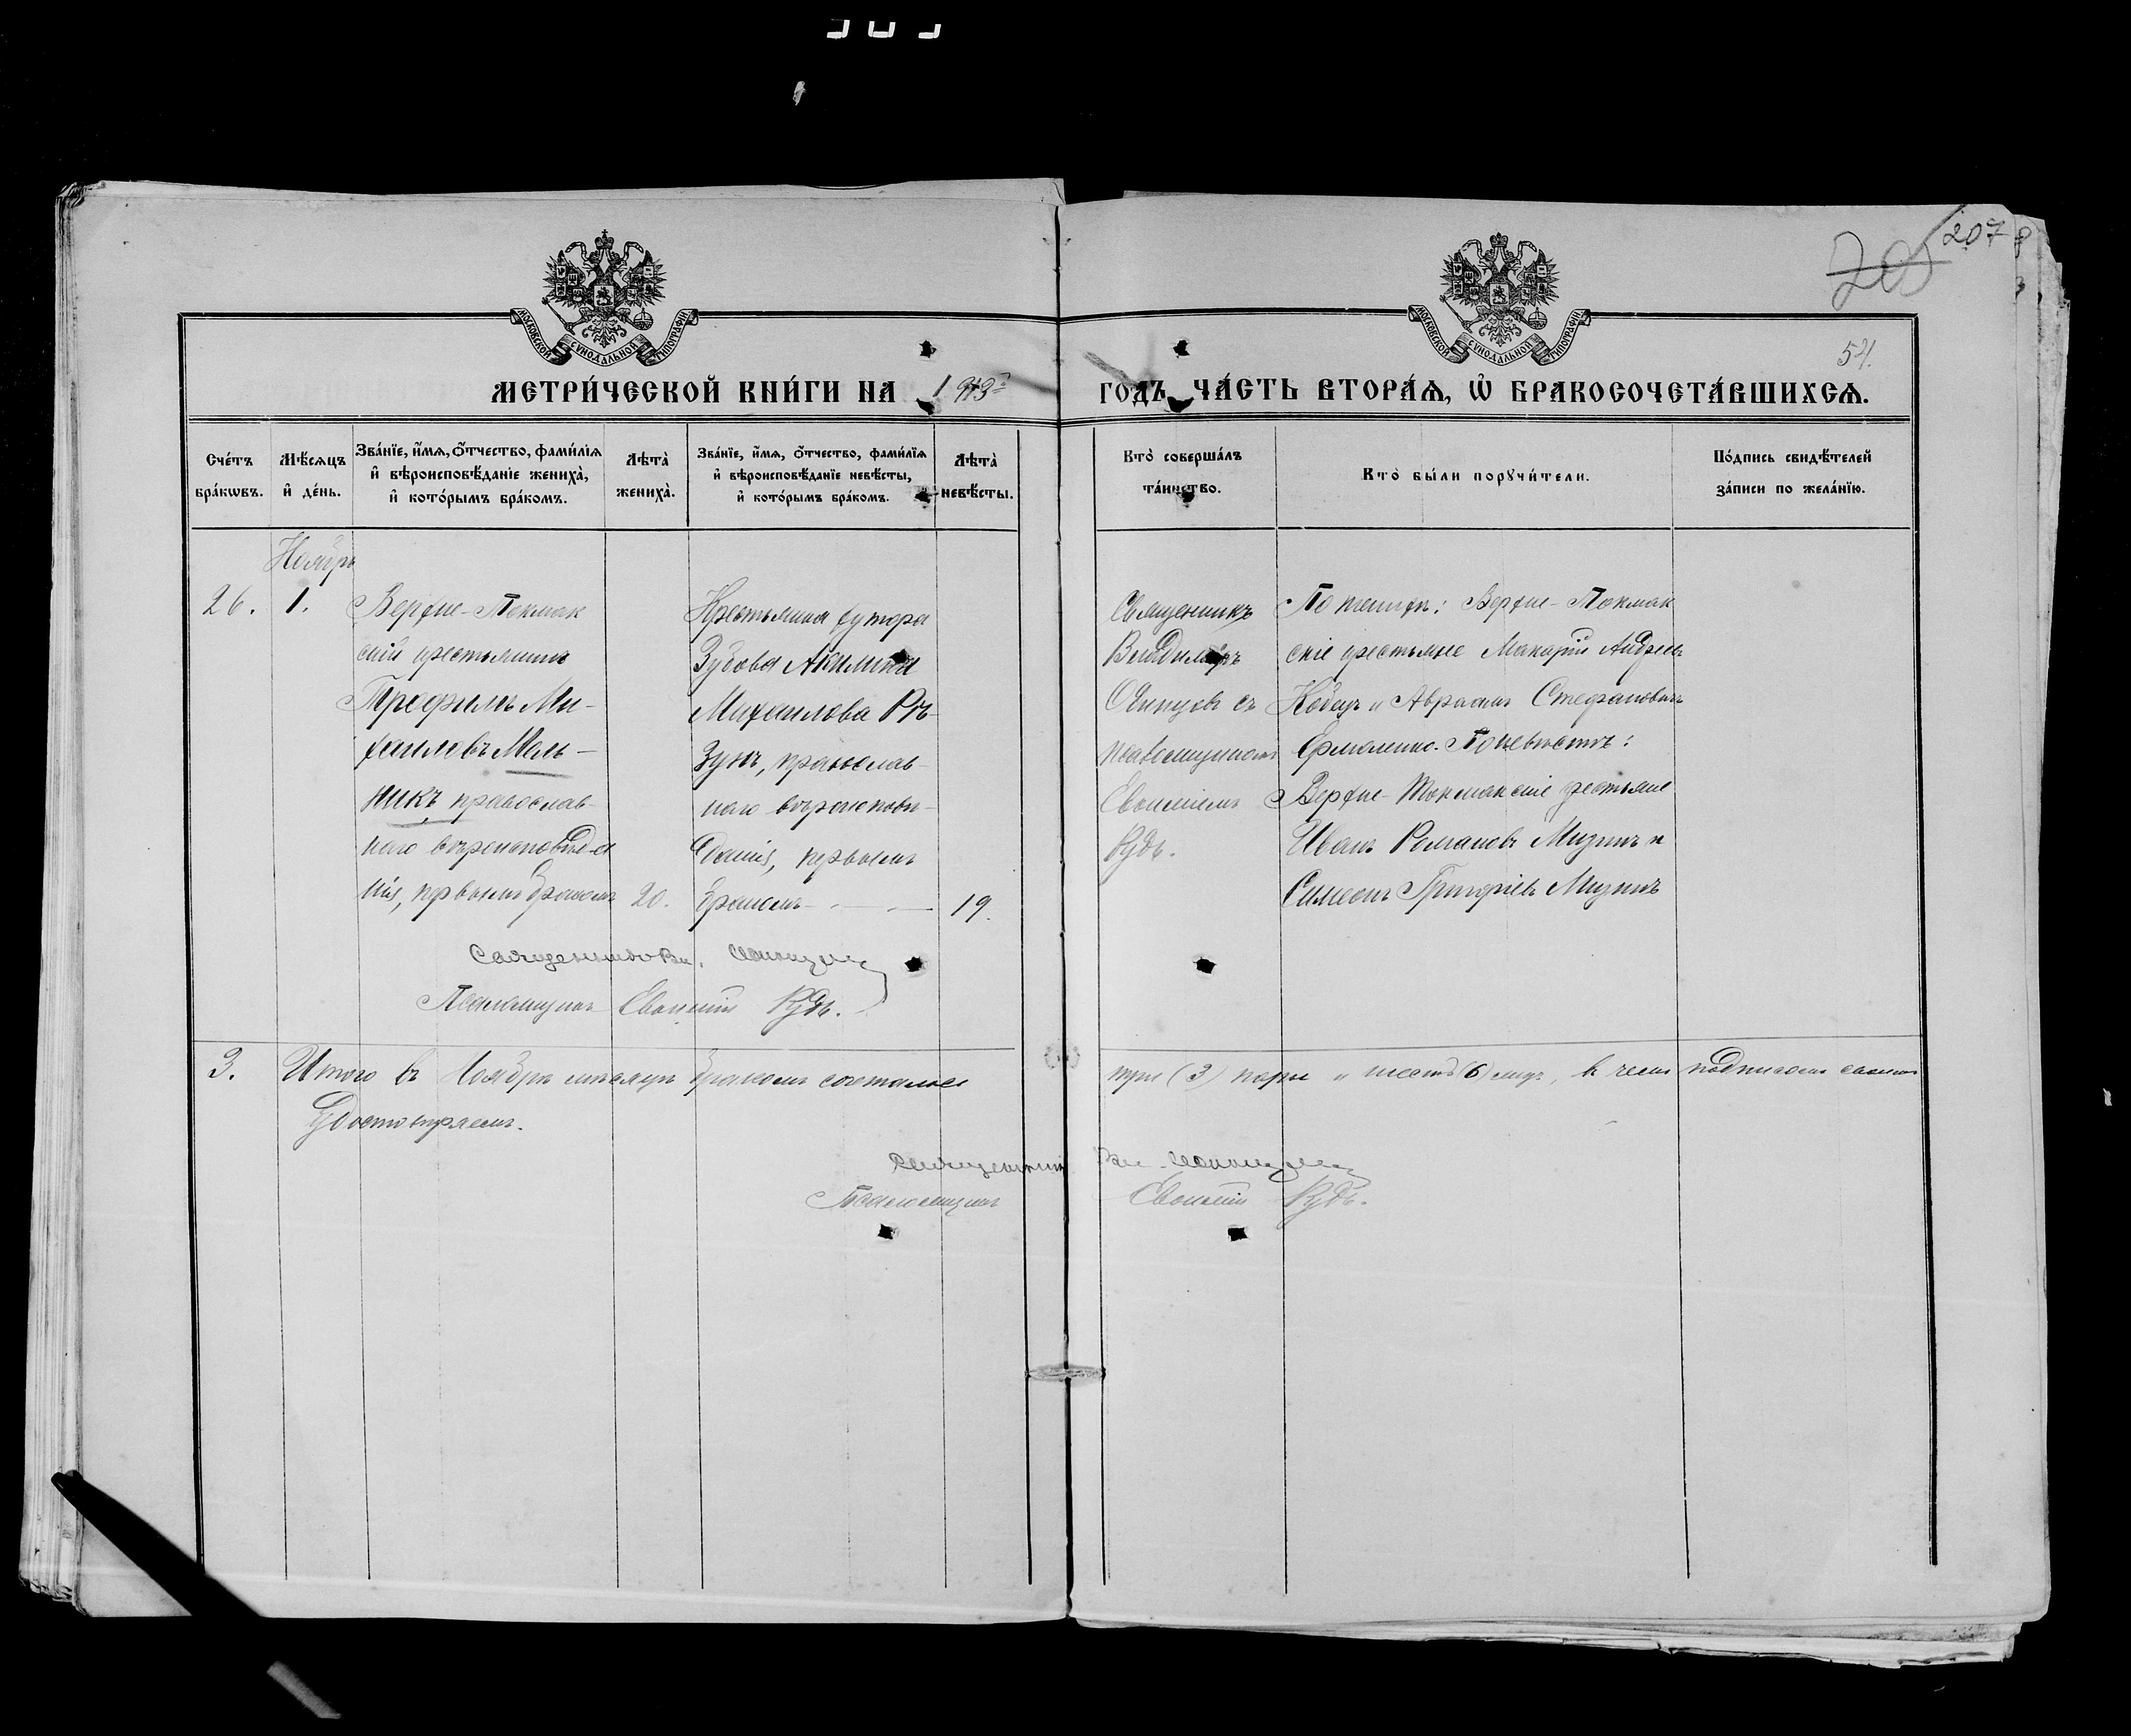 207
205
54.
МОСКОВСКОЙ СѴНОДАЛЬНОЙ ТИПОГРАФІИ
МОСКОВСКОЙ СѴНОДАЛЬНОЙ ТИПОГРАФІИ
МЕТРИ́ЧЕСКОЙ КНИ́ГИ НА 1913 ГОДЪ, ЧА́СТЬ ВТОРА́Ѧ, Ѽ БРАКОСОЧЕТА́ВШИХСѦ.
Сче́тъ бра́кѡвъ.
Мѣ́сѧцъ и҆ де́нь.
Зва́нїе, и҆́мѧ, ѻ҆́тчество, фами́лїѧ
и҆ вѣроисповѣ́данїе жениха̀,
и҆ кото́рымъ бра́комъ.
Лѣ́та жениха̀.
Зва́нїе, и҆́мѧ, ѻ҆́тчество, фами́лїѧ
и҆ вѣроисповѣ́данїе невѣ́сты,
и҆ кото́рымъ бра́комъ.
Лѣ́та невѣ́сты.
Кто̀ соверша́лъ
та́инство.
Кто̀ бы́ли порꙋчи́тели.
По́дпись свидѣ́телей
за́писи по жела́нїю.
Ноябрь
26.
1.
Верхне-Токмак
скій крестьянинъ
Трофимъ Ми-
хаиловъ Мель-
никъ, православ-
наго вѣроисповѣда
нія, первымъ бракомъ
20.
Крестьянка хутора
Зубова Акилина
Михаилова Рѣ-
зунъ, православ-
наго вѣроисповѣ-
данія, первымъ
бракомъ
19.
Священникъ
Владиміръ
съ
псаломщикомъ
Евѳиміемъ
Рудь.
По женихѣ: Верхне-Токмак
скіе крестьяне Макарій Андреевъ
Кобецъ и Авраамъ Стефановичъ
Ермоленко. По невѣстѣ:
Верхне-Токмакскіе крестьяне
Иванъ Романовъ Мизинъ и
Симеонъ Григоріевъ Мизинъ
Священникъ Вл.
Псаломщикъ Евѳимій Рудь.
3.
Итого въ Ноябрѣ мѣсяцѣ бракомъ сочталось три (3) пары и шесть (6) лицъ, въ чемъ подписомъ своимъ
удостовѣряемъ.
Священникъ Вл.
Псаломщикъ Евѳимій Рудь.